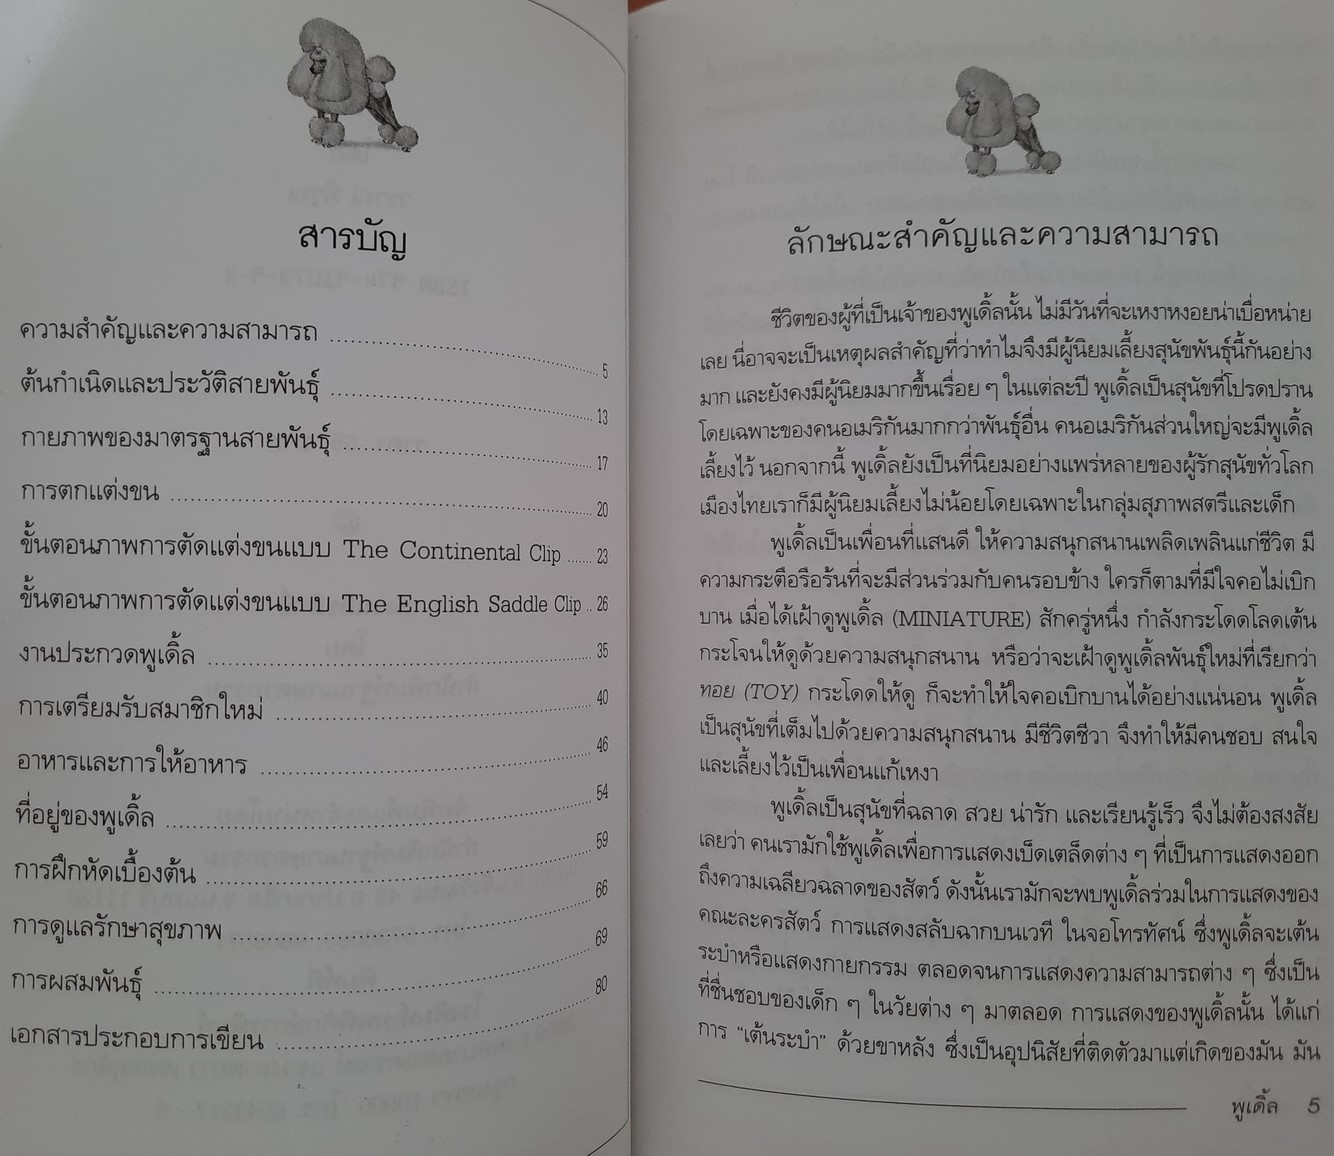 สารบัญ
ความสำคัญและความสามารถ ........ 5
ต้นกำเนิดและประวัติสายพันธุ์ ........ 13
กายภาพของมาตรฐานสายพันธุ์ ........ 17
การตกแต่งขน ........ 20
ขั้นตอนภาพการตัดแต่งขนแบบ The Continental Clip ........ 23
ขั้นตอนภาพการตัดแต่งขนแบบ The English Saddle Clip .. 26
งานประกวดพูเดิ้ล ........ 35
การเตรียมรับสมาชิกใหม่ ........ 40
อาหารและการให้อาหาร ........ 46
ที่อยู่ของพูเดิ้ล ........ 54
การฝึกหัดเบื้องต้น ........ 59
การดูแลรักษาสุขภาพ ........ 66
การผสมพันธุ์ ........ 69
เอกสารประกอบการเขียน ........ 80
ลักษณะสำคัญและความสามารถ
ชีวิตของผู้ที่เป็นเจ้าของพูเดิ้ลนั้น ไม่มีวันที่จะเหงาหงอยน่าเบื่อหน่าย
เลย นี่อาจจะเป็นเหตุผลสำคัญที่ว่าทำไมจึงมีผู้นิยมเลี้ยงสุนัขพันธุ์นี้กันอย่าง
มาก และยังคงมีผู้นิยมมากขึ้นเรื่อย ๆ ในแต่ละปี พูเดิ้ลเป็นสุนัขที่โปรดปราน
โดยเฉพาะของคนอเมริกันมากกว่าพันธุ์อื่น คนอเมริกันส่วนใหญ่จะมีพูเดิ้ล
เลี้ยงไว้ นอกจากนี้ พูเดิ้ลยังเป็นที่นิยมอย่างแพร่หลายของผู้รักสุนัขทั่วโลก
เมืองไทยเราก็มีผู้นิยมเลี้ยงไม่น้อยโดยเฉพาะในกลุ่มสุภาพสตรีและเด็ก
พูเดิ้ลเป็นเพื่อนที่แสนดี ให้ความสนุกสนานเพลิดเพลินแก่ชีวิต มี
ความกระตือรือร้นที่จะมีส่วนร่วมกับคนรอบข้าง ใครก็ตามที่มีใจคอไม่เบิก
บาน เมื่อได้เฝ้าดูพูเดิ้ล (MINIATURE) สักครู่หนึ่ง กำลังกระโดดโลดเต้น
กระโจนให้ดูด้วยความสนุกสนาน หรือว่าจะเฝ้าดูพูเดิ้ลพันธุ์ใหม่ที่เรียกว่า
ทอย (TOY) กระโดดให้ดู ก็จะทำให้ใจคอเบิกบานได้อย่างแน่นอน พูเดิ้ล
เป็นสุนัขที่เต็มไปด้วยความสนุกสนาน มีชีวิตชีวา จึงทำให้มีคนชอบ สนใจ
และเลี้ยงไว้เป็นเพื่อนแก้เหงา
พูเดิ้ลเป็นสุนัขที่ฉลาด สวย น่ารัก และเรียนรู้เร็ว จึงไม่ต้องสงสัย
เลยว่า คนเรามักใช้พูเดิ้ลเพื่อการแสดงเบ็ดเตล็ดต่าง ๆ ที่เป็นการแสดงออก
ถึงความเฉลียวฉลาดของสัตว์ ดังนั้นเรามักจะพบพูเดิ้ลร่วมในการแสดงของ
คณะละครสัตว์ การแสดงสลับฉากบนเวที ในจอโทรทัศน์ ซึ่งพูเดิ้ลจะเต้น
ระบำหรือแสดงกายกรรม ตลอดจนการแสดงความสามารถต่าง ๆ ซึ่งเป็น
ที่ชื่นชอบของเด็ก ๆ ในวัยต่าง ๆ มาตลอด การแสดงของพูเดิ้ลนั้น ได้แก่
การ "เต้นระบำ" ด้วยขาหลัง ซึ่งเป็นอุปนิสัยที่ติดตัวมาแต่เกิดของมัน มัน
พูเดิ้ล 5